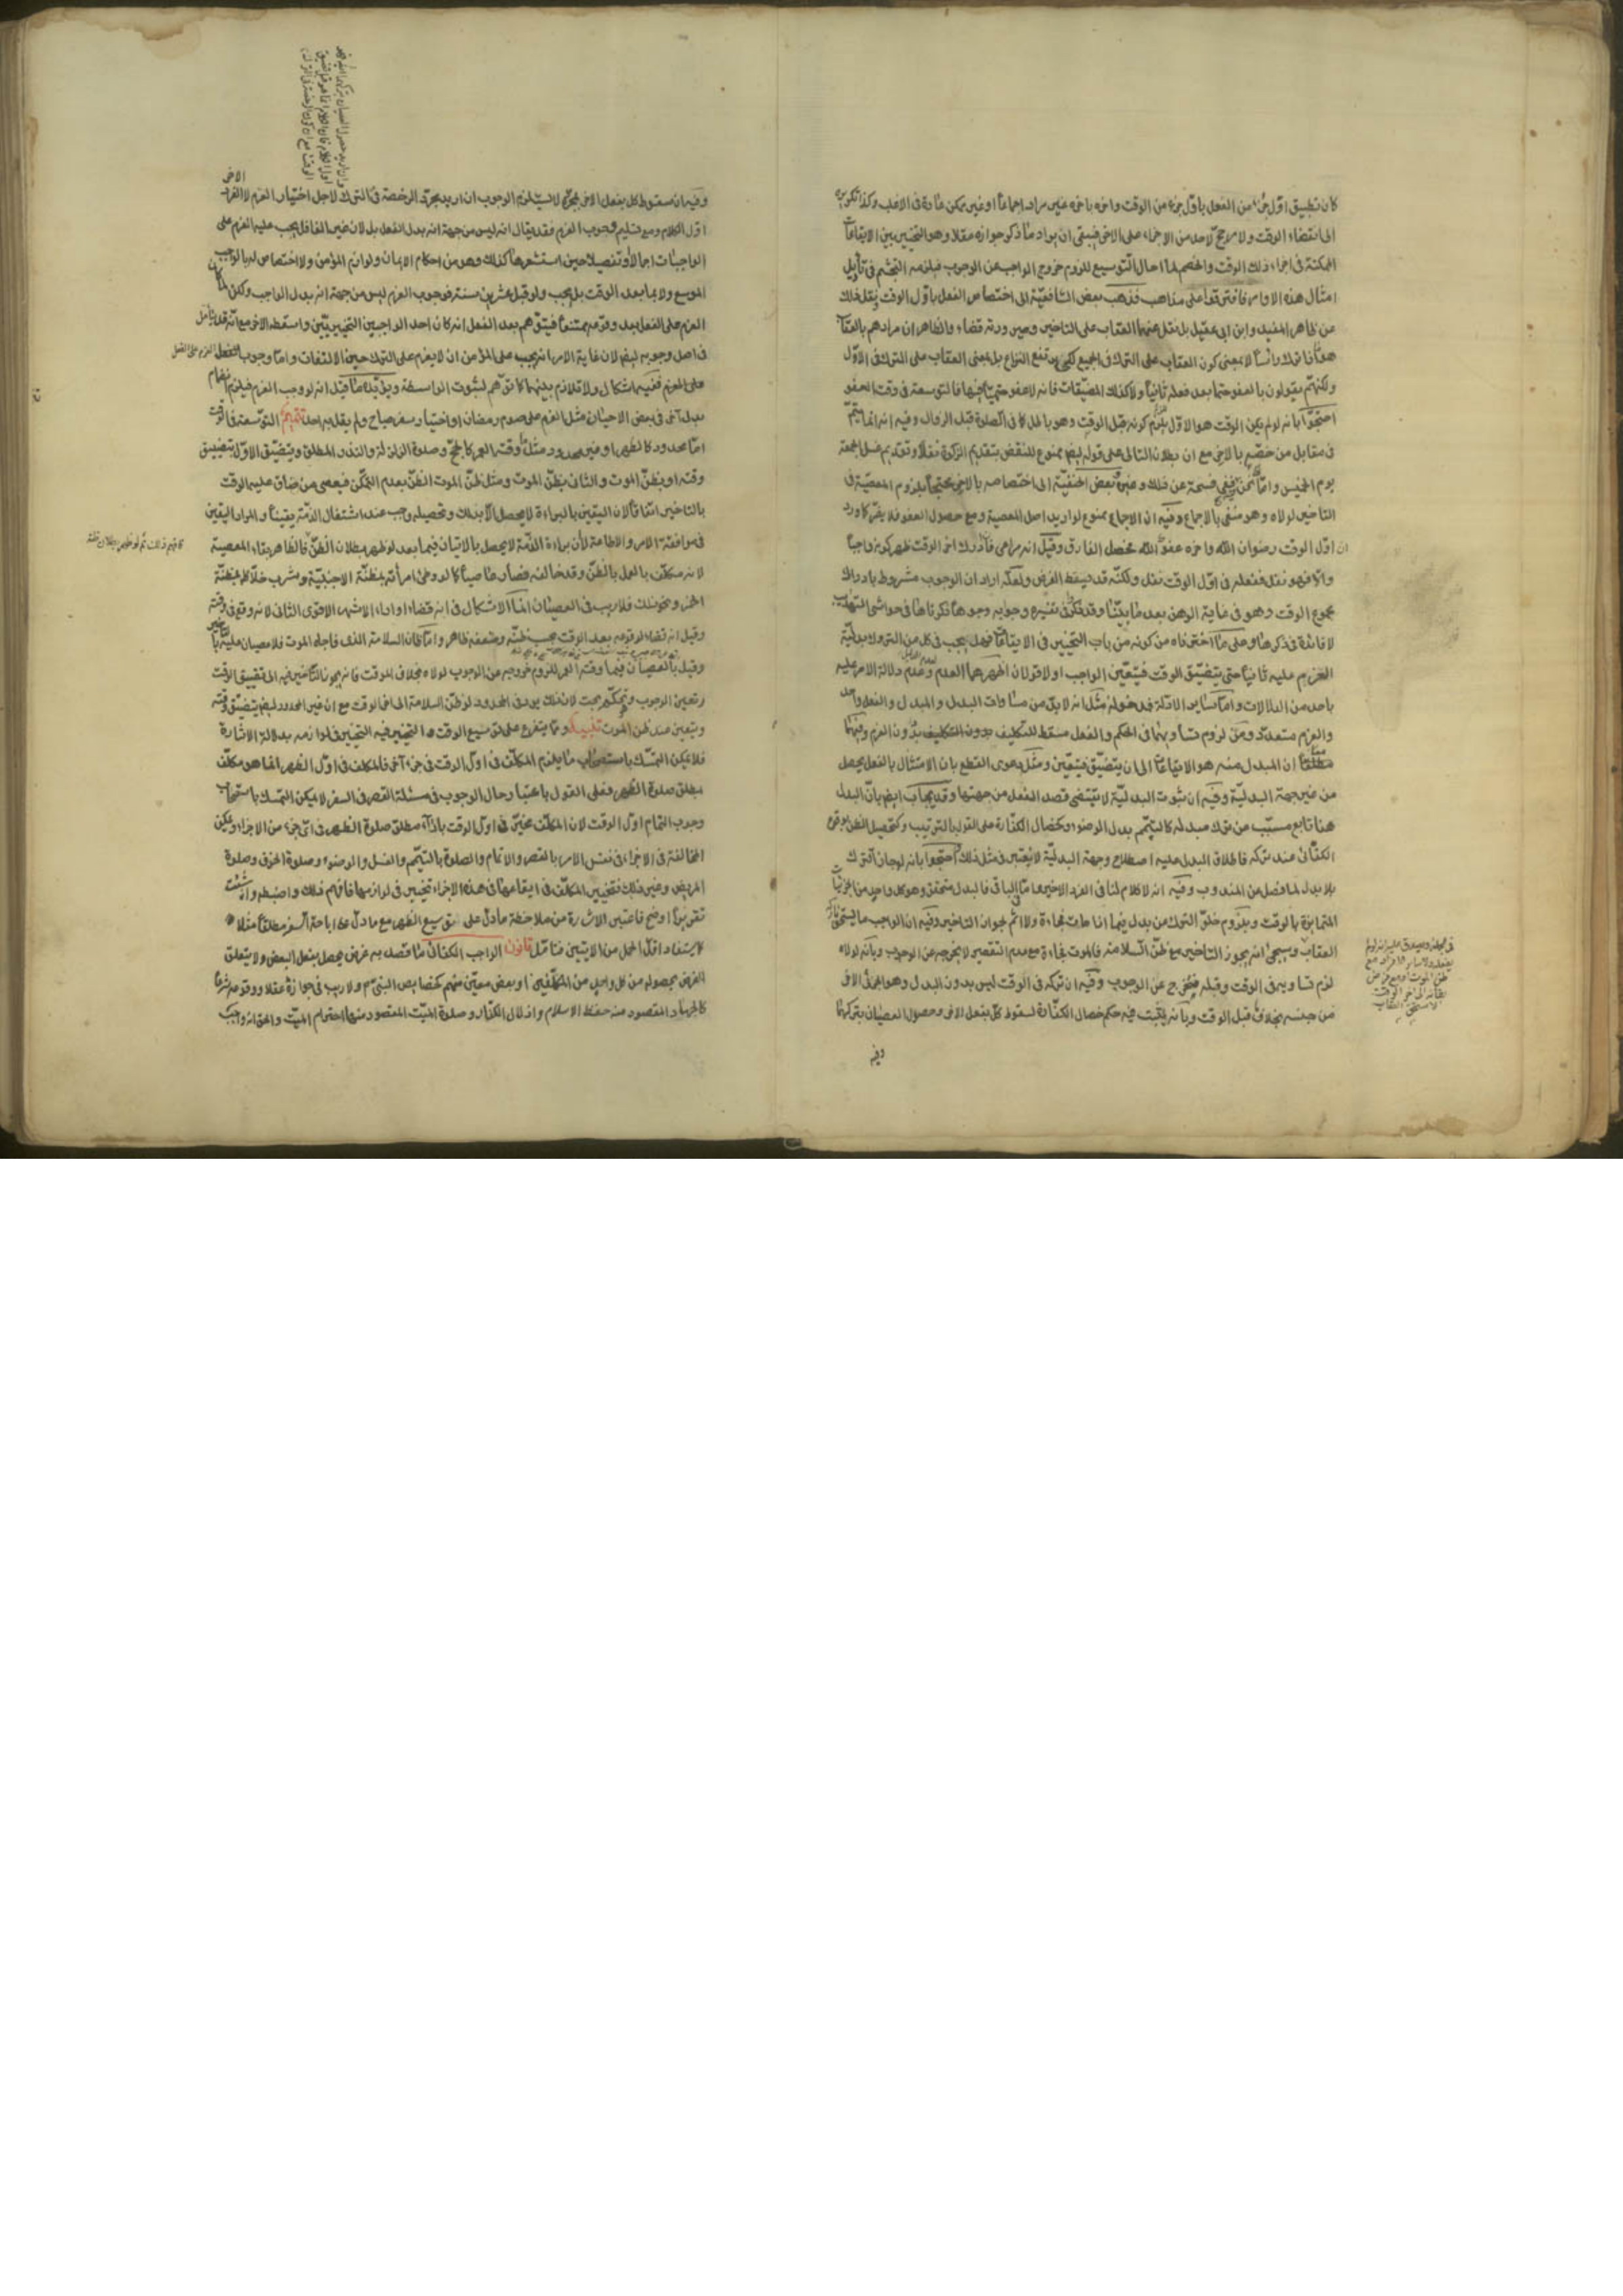 كان تطبيق اوّل جزء من الفعل باوّل جزء من الوقت واخره باخره غير مراد اجماعاً او غير ممكن عادة فى الاغلب وكذا تكريره
الى انقضاء الوقت ولا مرجح لاحد من الاجزاء على الاخر فبقى ان يراد ما ذكر جوازه عقلا وهو التخيير بين الايقاعات
الممكنة فى اجزاء ذلك الوقت والخصم لما احال التوسيع للزوم خروج الواجب عن الوجوب فيلزمه التجشم فى تأويل
امثال هذه الاوامر فافترقوا على مذاهب فذهب بعض الشافعيّة الى اختصاص الفعل باوّل الوقت ونقل ذلك
عن ظاهر المفيد وابن ابى عقيل بل نقل عنهما العقاب على التاخير وصيرورته قضاء والظاهر ان مرادهم بالعقاب
ولكنهم يقولون بالعفو حتما بعد فعله ثانياً ولا كذلك المضيّقات فانه لا عفو حتمياً فيها فالتوسعة فى وقت العفو
احتجّوا بانه لو لم يكن الوقت هو الاوّل للزم كونه قبل الوقت وهو باطل كما فى الصلوة قبل الزوال وفيه انه انما يتمّ
فى مقابل من خصّه بالاخر مع ان بطلان التالى على قوله ايضا ممنوع للنقض بتقديم الزكوة نقلاً وتقديم غسل الجمعة
يوم الخميس وامّا نحن ففى فسحة عن ذلك وغيره وبعض الحنفيّة الى اختصاصه بالاخر محتجاً بلزوم المعصيّة فى
التاخير لولاه وهو منفى بالاجماع وفيه ان الاجماع ممنوع لو اريد اصل المعصية ومع حصول العفو فلا يضر كما ورد
ان اوّل الوقت رضوان الله واخره عفو الله فحصل الفارق وقيل انه مراعى فان ادرك اخر الوقت ظهر كونه واجباً
والا فهو نفل ففعله فى اوّل الوقت نفل ولكنّه قد يسقط الفرض ولعلّه اراد ان الوجوب مشروط بادراك
مجموع الوقت وهو فى غاية الوهن بعد ما بيّنا وقد ذكر فى تفسيره وجوبه وجوها ذكرناها فى حواشى التهذيب
لا فائدة فى ذكرها وعلى ما اخترناه من كونه من باب التخيير فى الايقاعات فهل يجب فى كل من التروك بدليّة
العزم عليه ثانياً حتى يتضيّق الوقت فيتعيّن الواجب او لا قولان اظهرهما العدم لعدم الدليل وعدم دلالة الامر عليه
باحد من الدلالات وامّا سائر الادلّة فمدخولة مثل انه لا بدّ من مساوات البدل والمبدل والفعل واحد
والعزم متعدد ومن لزوم تساويهما فى الحكم والفعل مسقط للتكليف بدون التكليف بدون العزم وفيهما
ان المبدل منه هو الايقاعات الى ان يتضيّق فيتعيّن ومثل دعوى القطع بان الامتثال بالفعل يحصل
من غير جهة البدليّة وفيه ان ثبوت البدليّة لا يقتضى قصد الفعل من جهتها وقد يجاب ايضا بانّ البدل
هنا تابع مسبّب عن ترك مبدله كالتيمّم بدل الوضوء وكخصال الكفّارة على القول بالترتيب وكتحصيل الظن بوقوع
الكفائى عند تركه فاطلاق البدل عليه اصطلاح وجهة البدليّة لا يعتبر فى مثل ذلك احتجوا بانه لو جاز الترك
بلا بدل لما فصل من المندوب وفيه انه لا كلام لنا فى الفرد الاخير واما فى الباقى فالبدل متحقق وهو كل واحد من الجزئيات
المتمايزة بالوقت وبلزوم خلوّ الترك من بدل فيما اذا مات فجاءة ولا اثم لجواز التاخير وفيه ان الواجب ما يستحق تاركه
العقاب وسيجئ انه يجوز التاخير مع ظنّ السلامة فالموت فجاءة مع عدم التقصير لا يخرجه عن الوجوب وبانّه لولاه
لزم تساويه فى الوقت وقبله فيخرج عن الوجوب وفيه ان تركه فى الوقت ليس بدون البدل وهو الجزئى الاخر
من جنسه بخلاف قبل الوقت وبانّه يثبت فيه حكم خصال الكفّارة لسقوط كلّ بفعل الاخر وحصول العصيان بتركهما
وفيه
وفيه ان سقوط كل بفعل الاخر بمجرّده لا يستلزم الوجوب ان اريد بمجرّد الرخصة فى الترك لاجل اختيار العزم لا الفرد الاخر
اوّل الكلام ومع تسليم وجوب العزم فقد يقال انه ليس من جهة انه بدل الفعل بل لان غير الغافل يجب عليه العزم على
الواجبات اجمالاً وتفصيلا حين استشعرها كذلك وهو من احكام الايمان ولوازم المؤمن ولا اختصاص له بالواجب
الموسع ولا بما بعد الوقت بل يجب ولو قبل عشرين سنة فوجوب العزم ليس من جهة انه بدل الواجب ولكن لما كان
العزم على الفعل بعد وقوعه ممتنعاً فيتوهم بعد الفعل انه كان احد الواجبين التخييريّين واسقطه الاخر مع انّه قد يتأمل
فى اصل وجوبه ايضا لان غاية الامر انه يجب على المؤمن ان لا يعزم على الترك حين الالتفات وامّا وجوب العزم على الفعل
ففيه اشكال ولا تلازم بينهما كما توهم لثبوت الواسطة ويؤيّده ما قيل انه لو وجب العزم فيلزم انضمام
بدل آخر فى بعض الاحيان مثل العزم على صوم رمضان او اختيار سفر مباح ولم يقل به احد تتميم التوسعة فى الوقت
امّا محدود كالظهر او غير محدود مثل ما وقته العمر كالحج وصلوة الزلزلة والنذر المطلق ويتضيّق الاوّل بتضييق
وقته او بظنّ الموت والثانى بظنّ الموت ومثل ظنّ الموت الظنّ بعدم التمكّن فيعصى من ضاق عليه الوقت
بالتاخير اتفاقاً لان اليقين بالبراءة لا يحصل الا بذلك وتحصيله واجب عند اشتغال الذمّة يقيناً والمراد اليقين
فى موافقة الامر والاطاعة لان براءة الذمّة لا يحصل بالاتيان فيما بعد لو ظهر بطلان الظنّ فالظاهر بقاء المعصية
لانه مكلّف بالعمل بالظنّ وقد خالفه فصار عاصياً كما لو وطئ امرأته بمظنّة الاجنبيّة وشرب خلّا بمظنّة
الخمر ونحو ذلك فلا ريب فى العصيان انما الاشكال فى انه قضاء او اداء الاشهر الاقوى الثانى لانه وقع فى وقته
وقيل انه قضاء لوقوعه بعد الوقت بحسب ظنّه وضعفه ظاهر وامّا ظانّ السلامة الذى فاجاه الموت فلا عصيان عليه بالتاخير
وقيل بالعصيان فيما وقته العمر للزوم خروجه عن الوجوب لولاه بخلاف الموقت فانه يجوز التاخير فيه الى تضييق الوقت
وتعيين الوجوب وهو تحكّم بحت لان ذلك يرد فى المحدود لو ظنّ السلامة الى اخر الوقت مع ان غير المحدود ايضا يتضيّق وقته
ويتعين عند ظن الموت تنبيه ومما يتفرع على توسيع الوقت والتخيير فيه التخيير فى لوازمه بدلالة الاشارة
فلا يمكن التمسّك باستصحاب ما يلزم المكلّف فى اوّل الوقت فى جزء آخر فالمكلف فى اوّل الظهر انما هو مكلّف
بمطلق صلوة الظهر فعلى القول باعتبار حال الوجوب فى مسئلة القصر فى السفر لا يمكن التمسك باستصحاب
وجوب التمام اوّل الوقت لان المكلّف مخيّر فى اوّل الوقت باداء مطلق صلوة الظهر فى اىّ جزء من الاجزاء ويمكن
المخالفة فى الاجزاء فى نفس الامر بالقصر والاتمام والصلوة بالتيمّم والغسل والوضوء وصلوة الخوف وصلوة
المريض وغير ذلك فتخيير المكلّف فى ايقاعها فى هذه الاجزاء تخيير فى لوازمها فافهم ذلك واضبطه وان شئت
تقريراً اوضح فاعتبر الاشارة من ملاحظة ما دلّ على توسيع الظهر مع ما دلّ على اباحة السفر مطلقاً مثلا
كاستفادة اقلّ الحمل من الايتين فتامّل قانون الواجب الكفائى ما قصد به غرض يحصل بفعل البعض ولا يتعلق
الغرض بحصوله من كل واحد من المكلّفين او بعض معيّن منهم كخصايص النبىّ ص ولا ريب فى جوازه عقلا ووقوعه شرعاً
كالجهاد المقصود منه حفظ الاسلام واذلال الكفّار وصلوة الميّت المقصود منها احترام الميّت